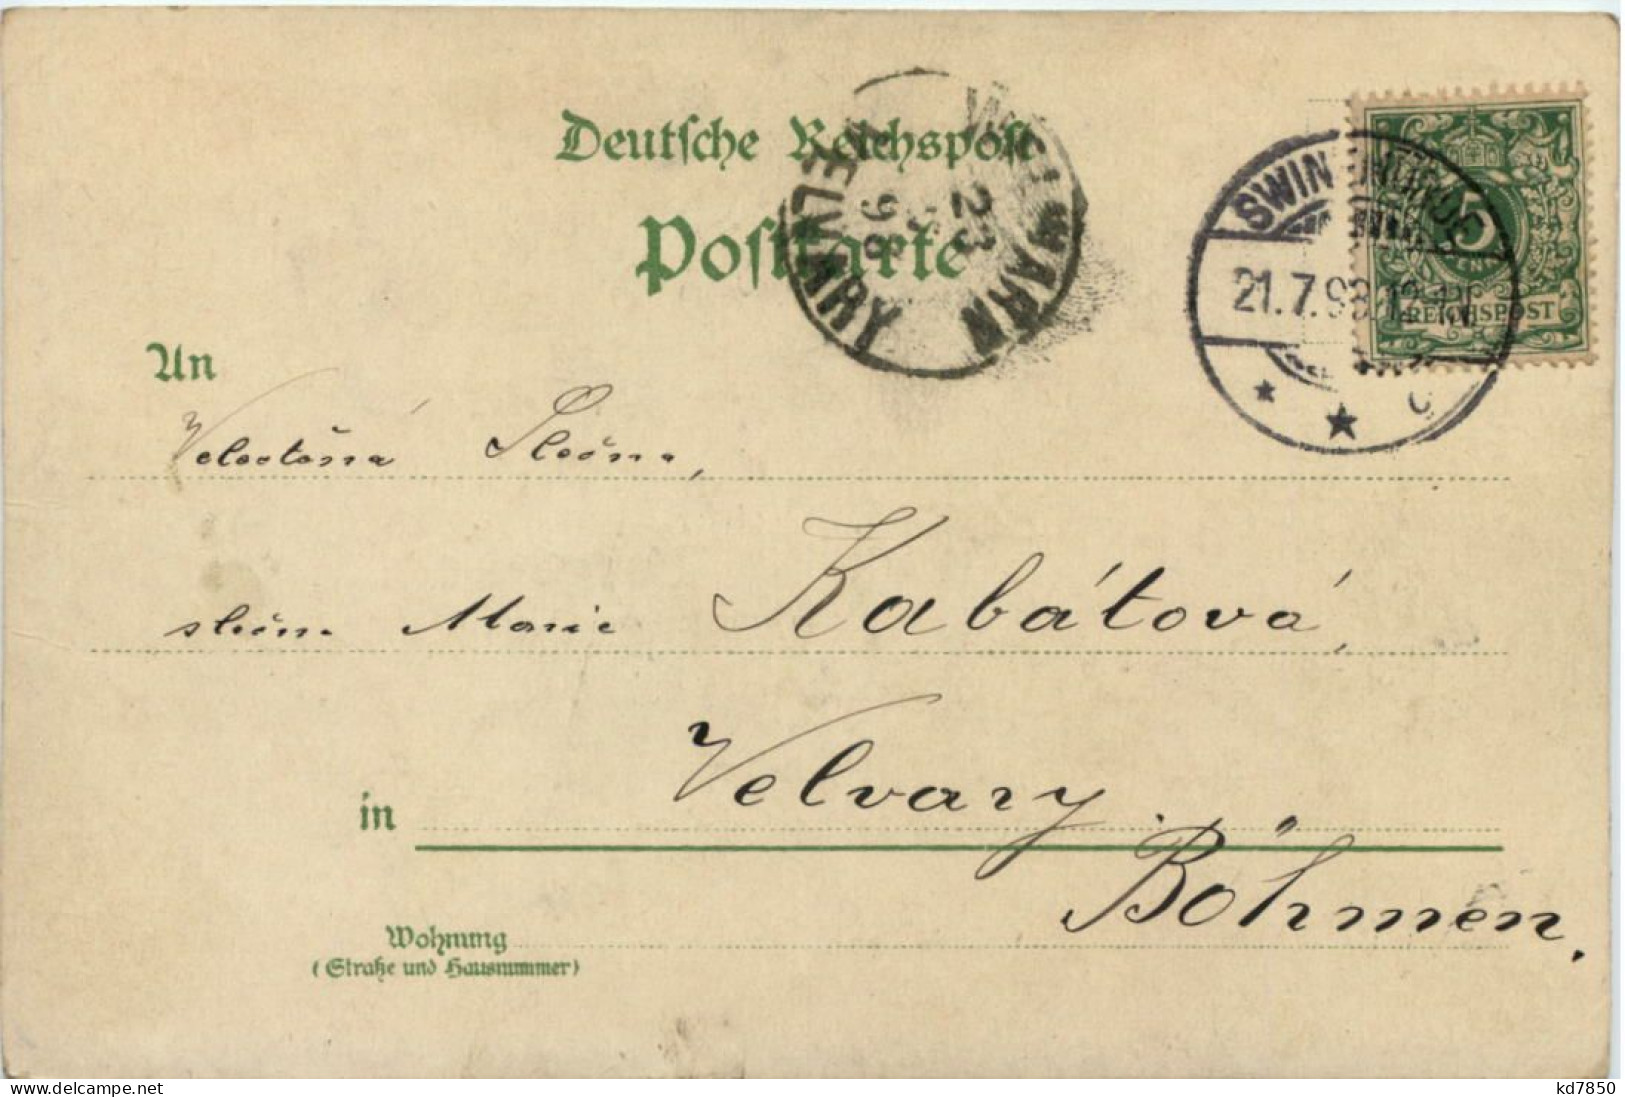 Deutsche Reichspost
Postkarte
WELWARN
23
7
98
VELVARY
SWINEMÜNDE
21.7.98.12-1N.
c
5
REICHSPOST
An
Velectěná Slečna,
slečna Marie Kabátová,
in Velvary
Böhmen.
Wohnung
(Straße und Hausnummer)
www.delcampe.net
kd7850